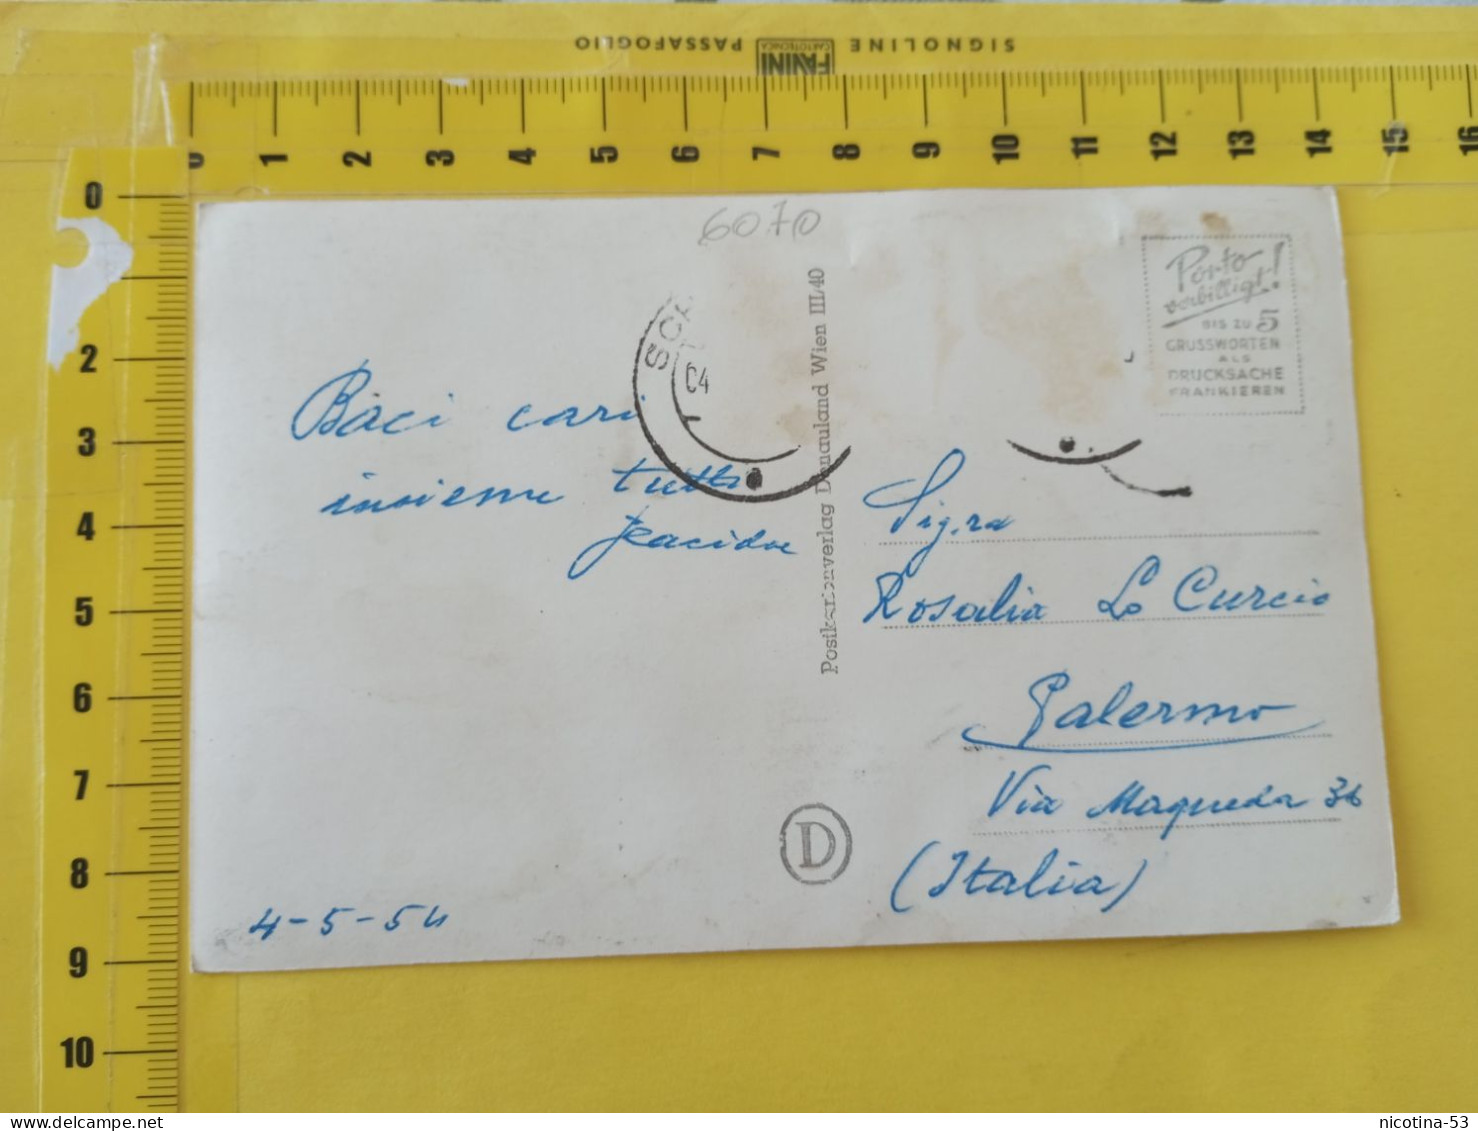 SIGNOLINE PASSAFOGLIO
FAVINI
CARTOTECNICA
0 1 2 3 4 5 6 7 8 9 10 11 12 13 14 15 16
0
2
3
4
5
6
7
8
9
10
6070
Porto
verbilligt!
BIS ZU 5
GRUSSWORTEN
ALS
DRUCKSACHE
FRANKIEREN
04
Baci cari
insieme tutti
Postkartenverlag Donauland Wien III/40
Sig.ra
Rosalia Lo Curcio
Palermo
Via Maqueda 36
(Italia)
D
4-5-54
nicotina-53